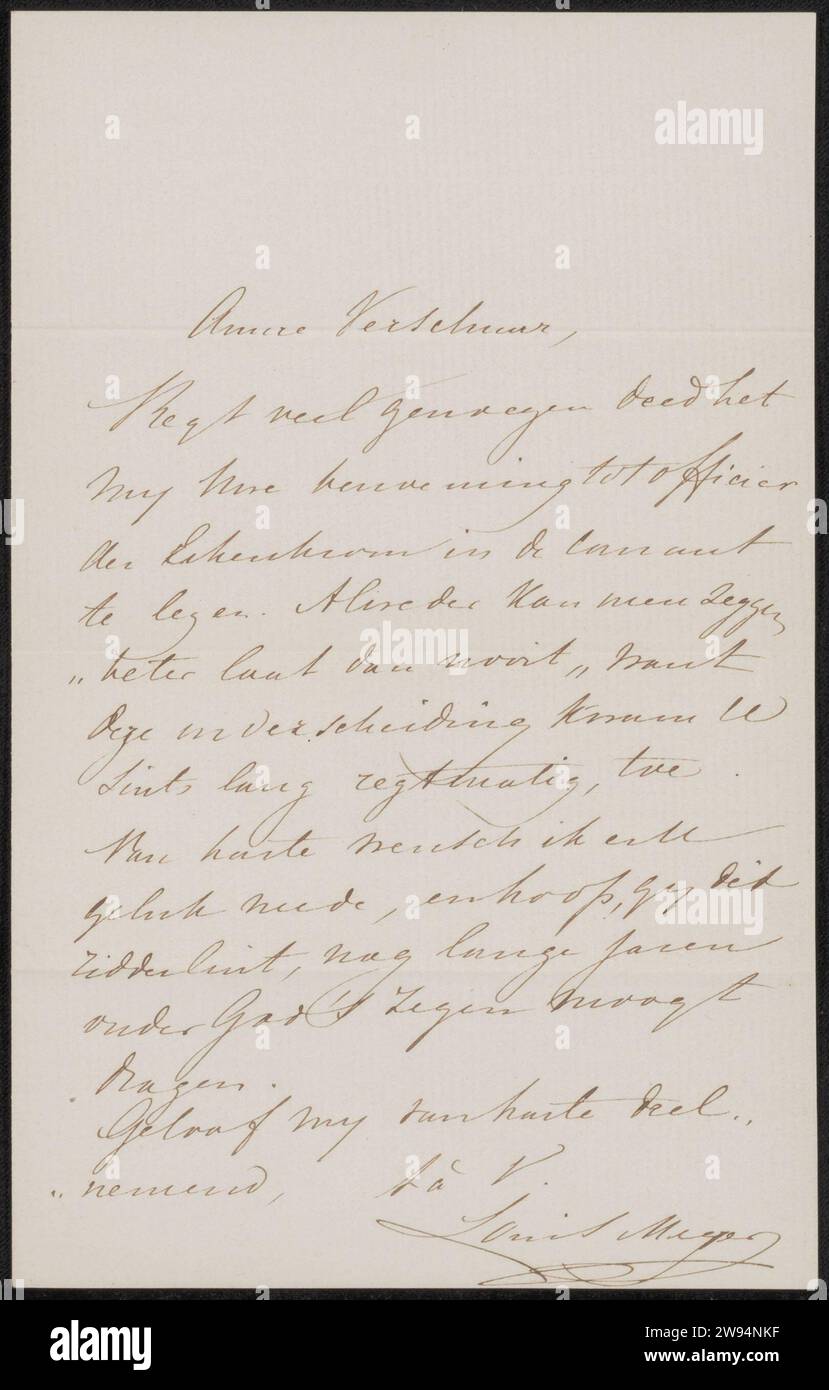 Amice Verschuur,
Regt veel genoegen deed het
my Uwe benoeming tot officier
der Eikenkroon in de Courant
te lezen. Alweder kan men zeggen
„beter laat dan nooit„ want
deze onderscheiding kwam U
sints lang regtmatig, toe.
Van harte wensch ik er U
geluk mede, en hoop, gy dit
ridderlint, nog lange jaren
onder God's zegen moogt
dragen.
Geloof my van harte deel„
„nemend, tà V.
Louis Meyer
alamy
www.alamy.com
2W94NKF